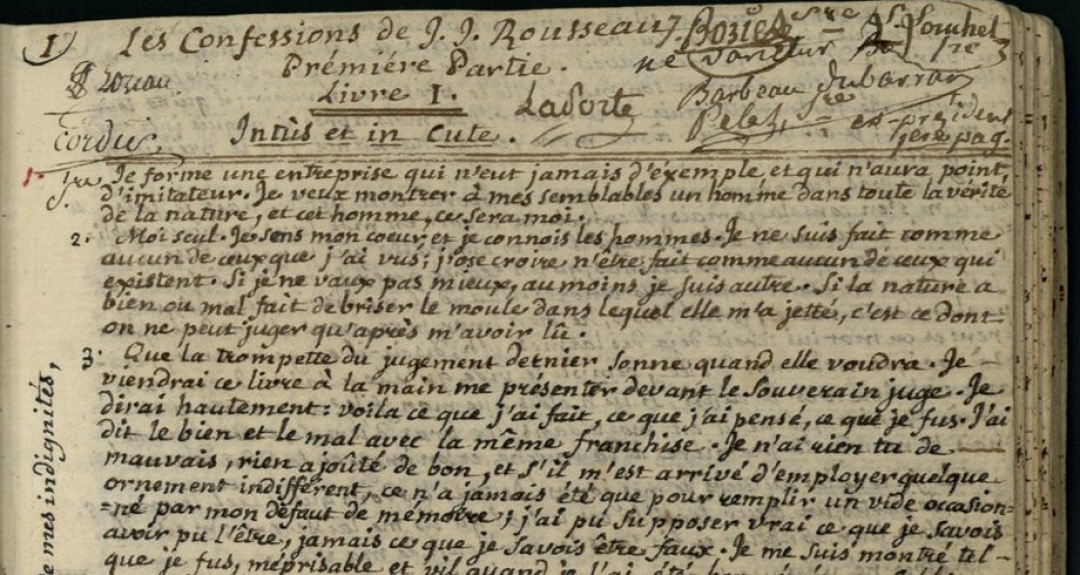 1
Les Confessions de J. J. Rousseau.
Premiére Partie.
Livre I.
Intùs et in Cute.
Laporte
Barbeau dubarran
Pelet
ex-président
1ere pag.
Cordier
1. Je forme une entreprise qui n'eut jamais d'éxemple, et qui n'aura point
d'imitateur. Je veux montrer à mes semblables un homme dans toute la vérité
de la nature, et cet homme, ce sera moi.
2. Moi seul. Je sens mon coeur, et je connois les hommes. Je ne suis fait comme
aucun de ceux que j'ai vus; j'ose croire n'être fait comme aucun de ceux qui
existent. Si je ne vaux pas mieux, au moins je suis autre. Si la nature a
bien ou mal fait de briser le moule dans lequel elle m'a jetté, c'est ce dont
on ne peut juger qu'après m'avoir lû.
3. Que la trompette du jugement dernier sonne quand elle voudra. Je —
viendrai ce livre à la main me présenter devant le Souverain juge. Je
dirai hautement: voila ce que j'ai fait, ce que j'ai pensé, ce que je fus. J'ai
dit le bien et le mal avec la même franchise. Je n'ai rien tu de —
mauvais, rien ajoûté de bon, et s'il m'est arrivé d'employer quelque
ornement indifférent, ce n'a jamais été que pour remplir un vide occasion=
=né par mon défaut de mémoire; j'ai pu supposer vrai ce que je savois
avoir pu l'être, jamais ce que je savois être faux. Je me suis montré tel —
que je fus, méprisable et vil quand je l'ai été,
de mes indignités,